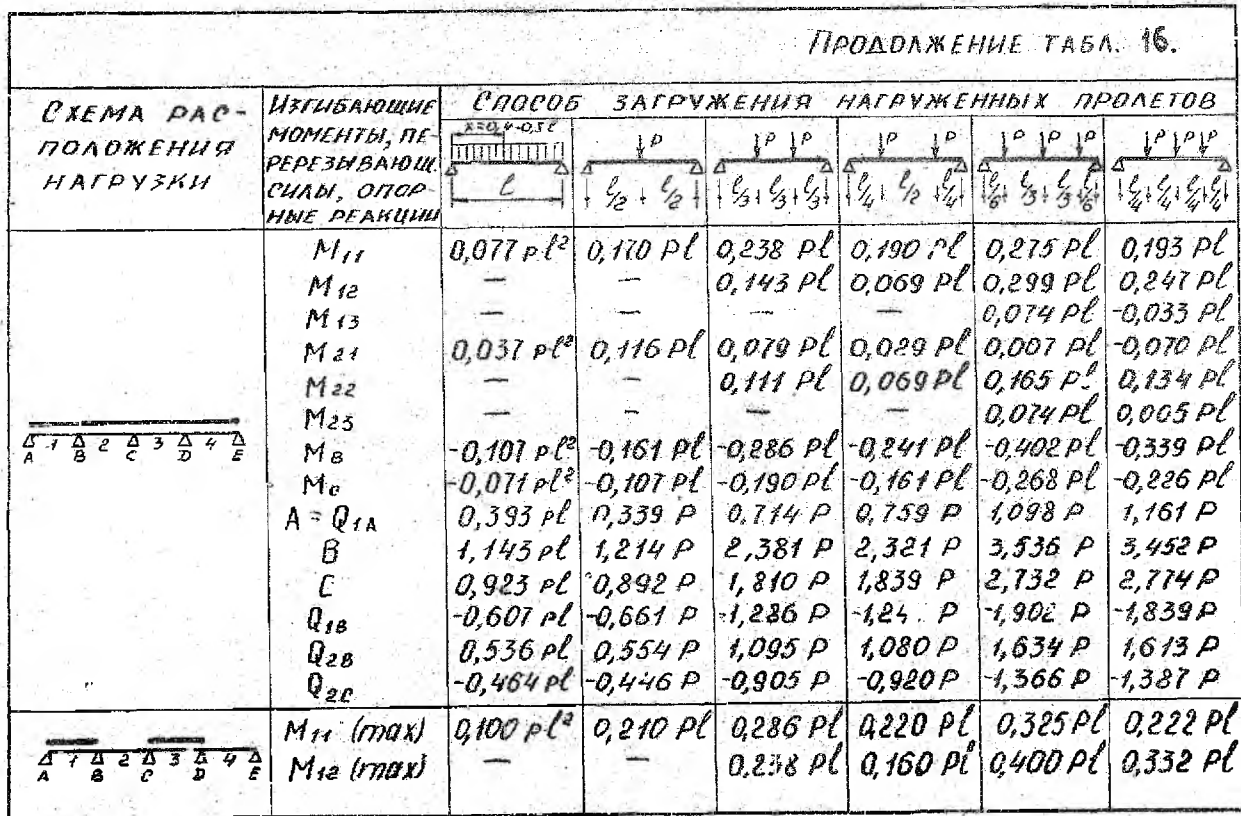 ПРОДОЛЖЕНИЕ ТАБЛ. 16.
СХЕМА РАС-
ПОЛОЖЕНИЯ
НАГРУЗКИ
ИЗГИБАЮЩИЕ
МОМЕНТЫ, ПЕ-
РЕРЕЗЫВАЮЩ.
СИЛЫ, ОПОР-
НЫЕ РЕАКЦИИ
СПОСОБ ЗАГРУЖЕНИЯ НАГРУЖЕННЫХ ПРОЛЕТОВ
x=0,4-0,5ℓ
ℓ
P
ℓ/2 ℓ/2
P P
ℓ/3 ℓ/3 ℓ/3
P P
ℓ/4 ℓ/2 ℓ/4
P P P
ℓ/6 ℓ/3 ℓ/3 ℓ/6
P P P
ℓ/4 ℓ/4 ℓ/4 ℓ/4
M11 0,077 pℓ² 0,170 Pℓ 0,238 Pℓ 0,190 Pℓ 0,275 Pℓ 0,193 Pℓ
M12 — — 0,143 Pℓ 0,069 Pℓ 0,299 Pℓ 0,247 Pℓ
M13 — — — — 0,074 Pℓ -0,033 Pℓ
M21 0,037 pℓ² 0,116 Pℓ 0,079 Pℓ 0,029 Pℓ 0,007 Pℓ -0,070 Pℓ
M22 — — 0,111 Pℓ 0,069 Pℓ 0,165 P 0,134 Pℓ
M23 — — — — 0,074 Pℓ 0,005 Pℓ
A 1 B 2 C 3 D 4 E
MB -0,107 pℓ² -0,161 Pℓ -0,286 Pℓ -0,241 Pℓ -0,402 Pℓ -0,339 Pℓ
MC -0,071 pℓ² -0,107 Pℓ -0,190 Pℓ -0,161 Pℓ -0,268 Pℓ -0,226 Pℓ
A = Q1A 0,393 pℓ 0,339 P 0,714 P 0,759 P 1,098 P 1,161 P
B 1,143 pℓ 1,214 P 2,381 P 2,321 P 3,536 P 3,452 P
C 0,923 pℓ 0,892 P 1,810 P 1,839 P 2,732 P 2,774 P
Q1B -0,607 pℓ -0,661 P -1,286 P -1,24 P -1,902 P -1,839 P
Q2B 0,536 pℓ 0,554 P 1,095 P 1,080 P 1,634 P 1,613 P
Q2C -0,464 pℓ -0,446 P -0,905 P -0,920 P -1,366 P -1,387 P
M11 (max) 0,100 pℓ² 0,210 Pℓ 0,286 Pℓ 0,220 Pℓ 0,325 Pℓ 0,222 Pℓ
A 1 B 2 C 3 D 4 E
M12 (max) — — 0,238 Pℓ 0,160 Pℓ 0,400 Pℓ 0,332 Pℓ